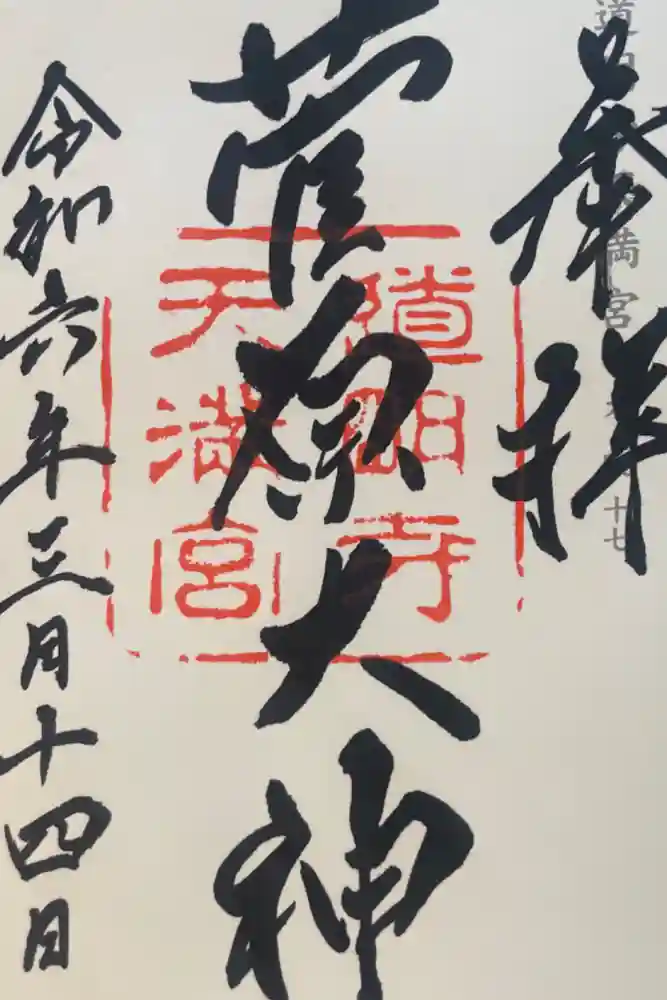 奉拝
菅原大神
令和六年三月十四日
道明寺
天満宮
満宮
十七